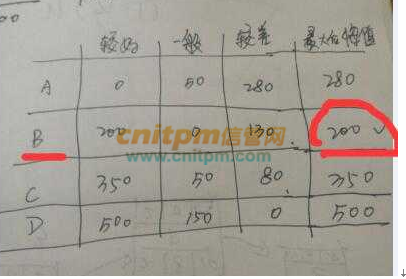 500
较好 一般 较差 最大后悔值
A 0 50 280 280
B 200 0 130 200 ✓
cnitpm信管网
www.cnitpm.com
C 350 50 80 350
D 500 150 0 500